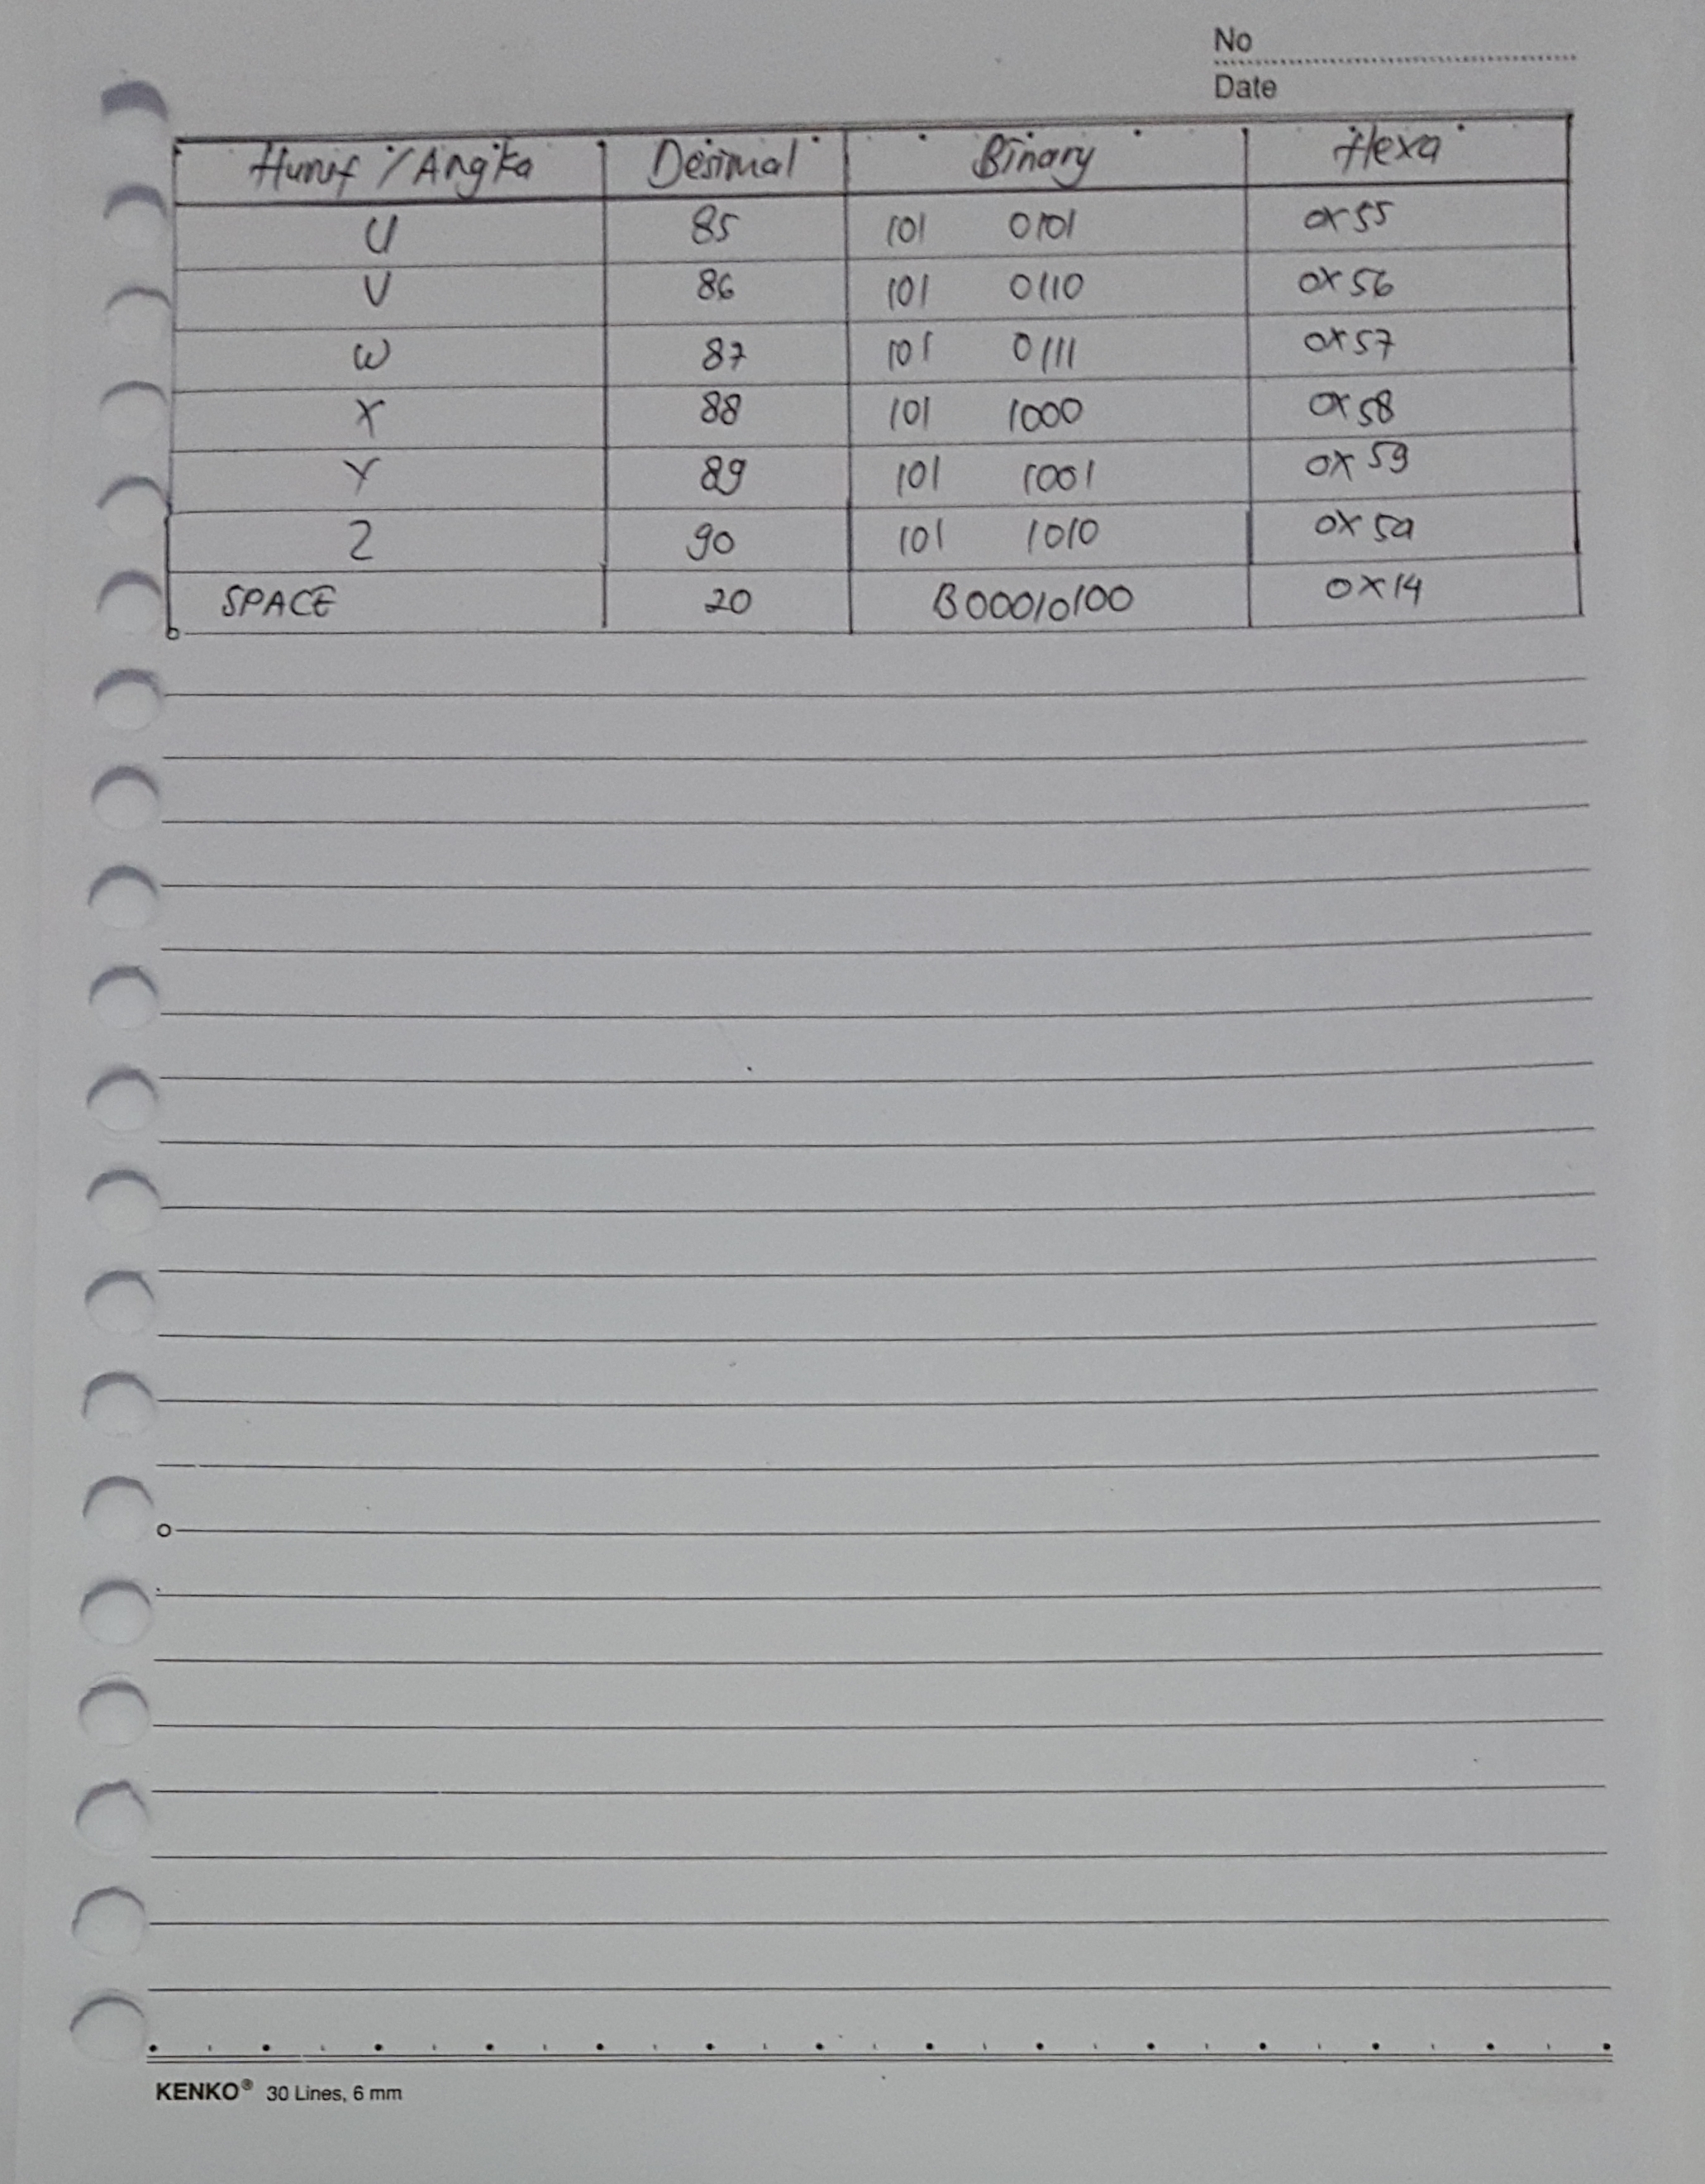 No
Date
Huruf / Angka Desimal Binary Hexa
U 85 101 0101 0x55
V 86 101 0110 0x56
W 87 101 0111 0x57
X 88 101 1000 0x58
Y 89 101 1001 0x59
Z 90 101 1010 0x5a
SPACE 20 B00010100 0x14
KENKO® 30 Lines, 6 mm